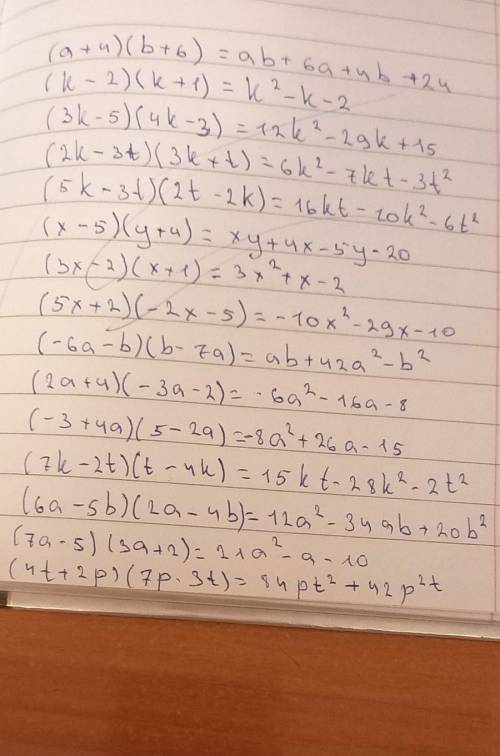 (a+4)(b+6) = ab+6a+4b+24
(k-2)(k+1) = k²-k-2
(3k-5)(4k-3) = 12k²-29k+15
(2k-3t)(3k+t) = 6k²-7kt-3t²
(5k-3t)(2t-2k) = 16kt-10k²-6t²
(x-5)(y+4) = xy+4x-5y-20
(3x-2)(x+1) = 3x²+x-2
(5x+2)(-2x-5) = -10x²-29x-10
(-6a-b)(b-7a) = ab+42a²-b²
(2a+4)(-3a-2) = -6a²-16a-8
(-3+4a)(5-2a) = -8a²+26a-15
(7k-2t)(t-4k) = 15kt-28k²-2t²
(6a-5b)(2a-4b) = 12a²-34ab+20b²
(7a-5)(3a+2) = 21a²-a-10
(4t+2p)(7p·3t) = 84pt²+42p²t